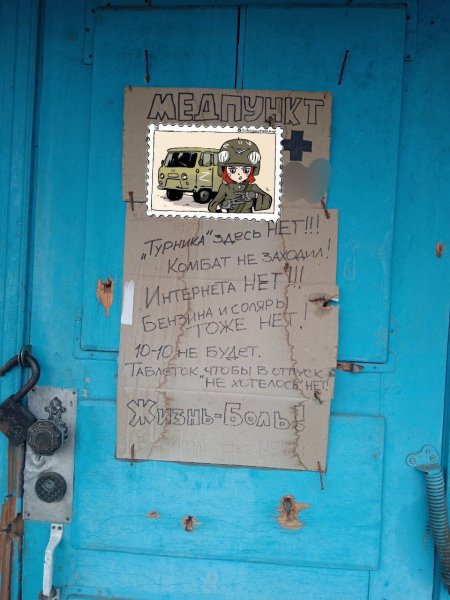 МЕДПУНКТ
„Турника“ здесь НЕТ!!!
Комбат не заходил!
Интернета НЕТ!!!
Бензина и соляры
тоже нет!
10-10 не будет.
Таблеток „чтобы в отпуск
не хотелось“ нет!
Жизнь-Боль!